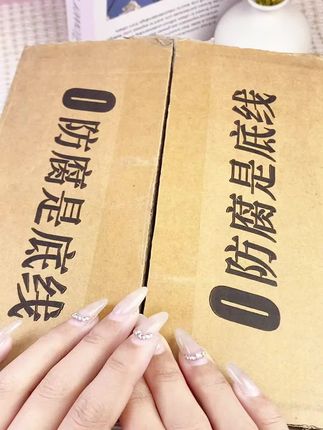 0防腐是底线
0防腐是底线